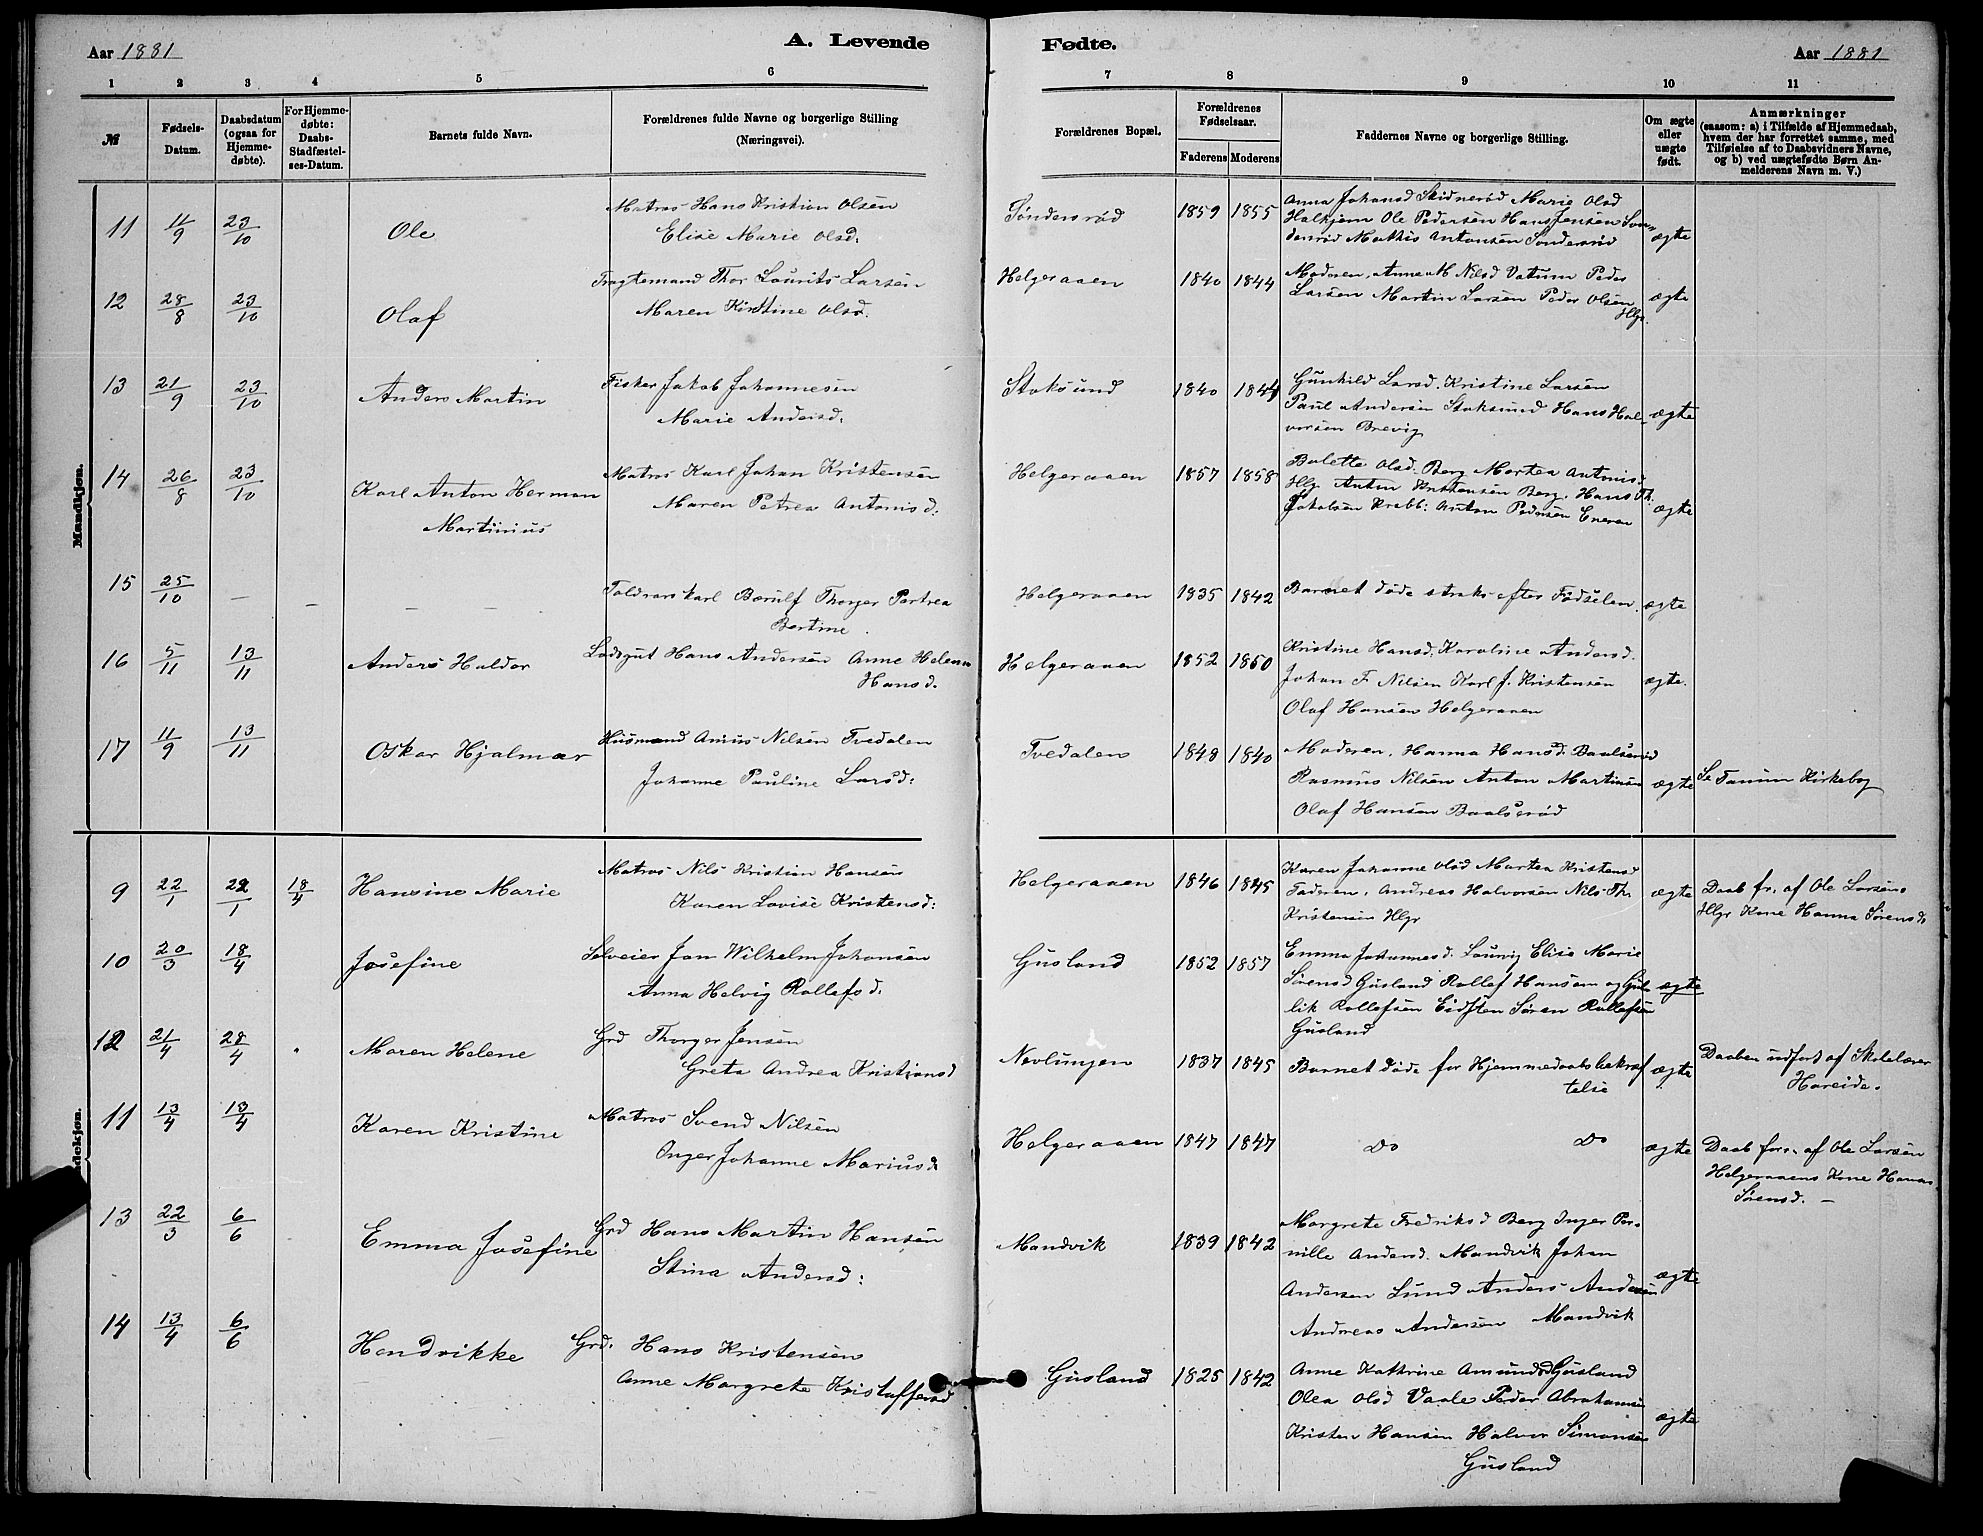 Aar 1881 A. Levende Fødte. Aar 1881
1 2 3 4 5 6 7 8 9 10 11
№
Fødsels-Datum.
Daabsdatum (ogsaa for Hjemme-døbte).
For Hjemme-døbte: Daabs-Stadfæstel-ses-Datum.
Barnets fulde Navn.
Forældrenes fulde Navne og borgerlige Stilling
(Næringsvei).
Forældrenes Bopæl.
Forældrenes Fødselsaar.
Faderens Moderens
Faddernes Navne og borgerlige Stilling.
Om ægte eller uægte født.
Anmærkninger
(saasom: a) i Tilfælde af Hjemmedaab,
hvem der har forrettet samme, med
Tilføielse af to Daabsvidners Navne,
og b) ved uægtefødte Børn An-
melderens Navn m. V.)
Mandkjøn.
11 11/9 23/10 Ole
Matros Hans Kristian Olsen
Elise Marie Olsd.
Søndersrød 1859 1855
Anna Johansd Skidnerød Marie Olsd
Halkjem Ole Pedersen Hans Jensen Søn-
dersrød Mathis Antonsen Søndersrød
ægte
12 28/8 23/10 Olaf
Fragtemand Thor Laurits Larsen
Maren Kirstine Olsd.
Helgeraaen 1840 1844
Moderen, Anne M Nilsd Vatum Peder
Larsen Martin Larsen Peder Olsen
Hlgr.
ægte
13 21/9 23/10 Anders Martin
Fisker Jakob Johannesen
Marie Andersd.
Stoksund 1840 1844
Gunhild Larsd. Kristine Larsen
Paul Andersen Stoksund Hans Hal-
vorsen Brevig
ægte
14 26/8 23/10 Karl Anton Herman
Martinius
Matros Karl Johan Kristensen
Maren Petrea Antonisd.
Helgeraaen 1857 1858
Bolette Olsd. Berg Martea Antonisd
Hlgr Anton Kristensen Berg. Hans Th.
Jakobsen Krabb: Anton Pedersen Eneren
ægte
15 25/10 — — — —
Toldrorskarl Børulf Thorger Partrea
Bertine.
Helgeraaen 1835 1842
Barnet døde straks efter Fødselen.
ægte
16 5/11 13/11 Anders Haldor
Lodsgut Hans Andersen Anne Helene
Hansd.
Helgeraaen 1852 1860
Kristine Hansd. Karoline Andersd.
Johan F. Nilsen Karl J. Kristensen
Olaf Hansen Helgeraaen
ægte.
17 11/9 13/11 Oskar Hjalmar
Husmand Anius Nilsen Tvedalen
Johanne Pauline Larsd:
Tvedalen 1848 1840
Moderen, Hanna Hansd. Baalsrød
Rasmus Nilsen Anton Martinsen
Olaf Hansen Baalsrød
ægte Se Tanum Kirkebog
9 22/1 22/1 18/4 Hansine Marie
Matros Nils Kristian Hansen
Karen Lovise Kristensd:
Helgeraaen 1846 1845
Karen Johanne Olsd Martea Kristensd
Fadren, Andreas Halvorsen Nils Th.
Kristensen Hlgr
ægte
Daab fr. af Ole Larsens
Hlgr Kone Hanna Sørensd.
10 20/3 18/4 Josefine
Selveier Jan Wilhelm Johansen
Anna Helvig Rollefsd.
Gusland 1852 1857
Emma Johannesd. Laurvig Elise Marie
Sørensd Gusland Rollef Hansen og Gul-
lik Rollefsen Eidsten Søren Rollefsen
Gusland
ægte
12 21/4 28/4 Maren Helene
Grd Thorger Jensen
Greta Andrea Kristiansd
Nevlungen 1837 1845
Barnet døde før Hjemmedaabsbekræf
telse
ægte
Daaben udført af Skolelærer
Hareide.
11 13/4 13/4 Karen Kristine
Matros Svend Nilsen
Inger Johanne Mariusd.
Helgeraaen 1847 1847
Do Do
ægte
Daab forr. af Ole Larsen
Helgeraaens Kone Hanna
Sørensd. —
ndekjøn.
13 22/3 6/6 Emma Josefine
Grd Hans Martin Hansen
Stina Andersd:
Mandvik 1839 1842
Margrete Fredriksd Berg Inger Per-
nille Andersd. Mandvik Johan
Andersen Lund Anders Andersen
Andreas Andersen Mandvik
ægte
14 13/4 6/6 Hendrikke
Grd. Hans Kristensen
Anne Margrete Kristoffersd
Gusland 1825 1842
Anne Kathrine Amundsd Gusland
Olea Olsd Vaale Peder Abrahamsen
Kristen Hansen Halvor Simonsen
Gusland
ægte